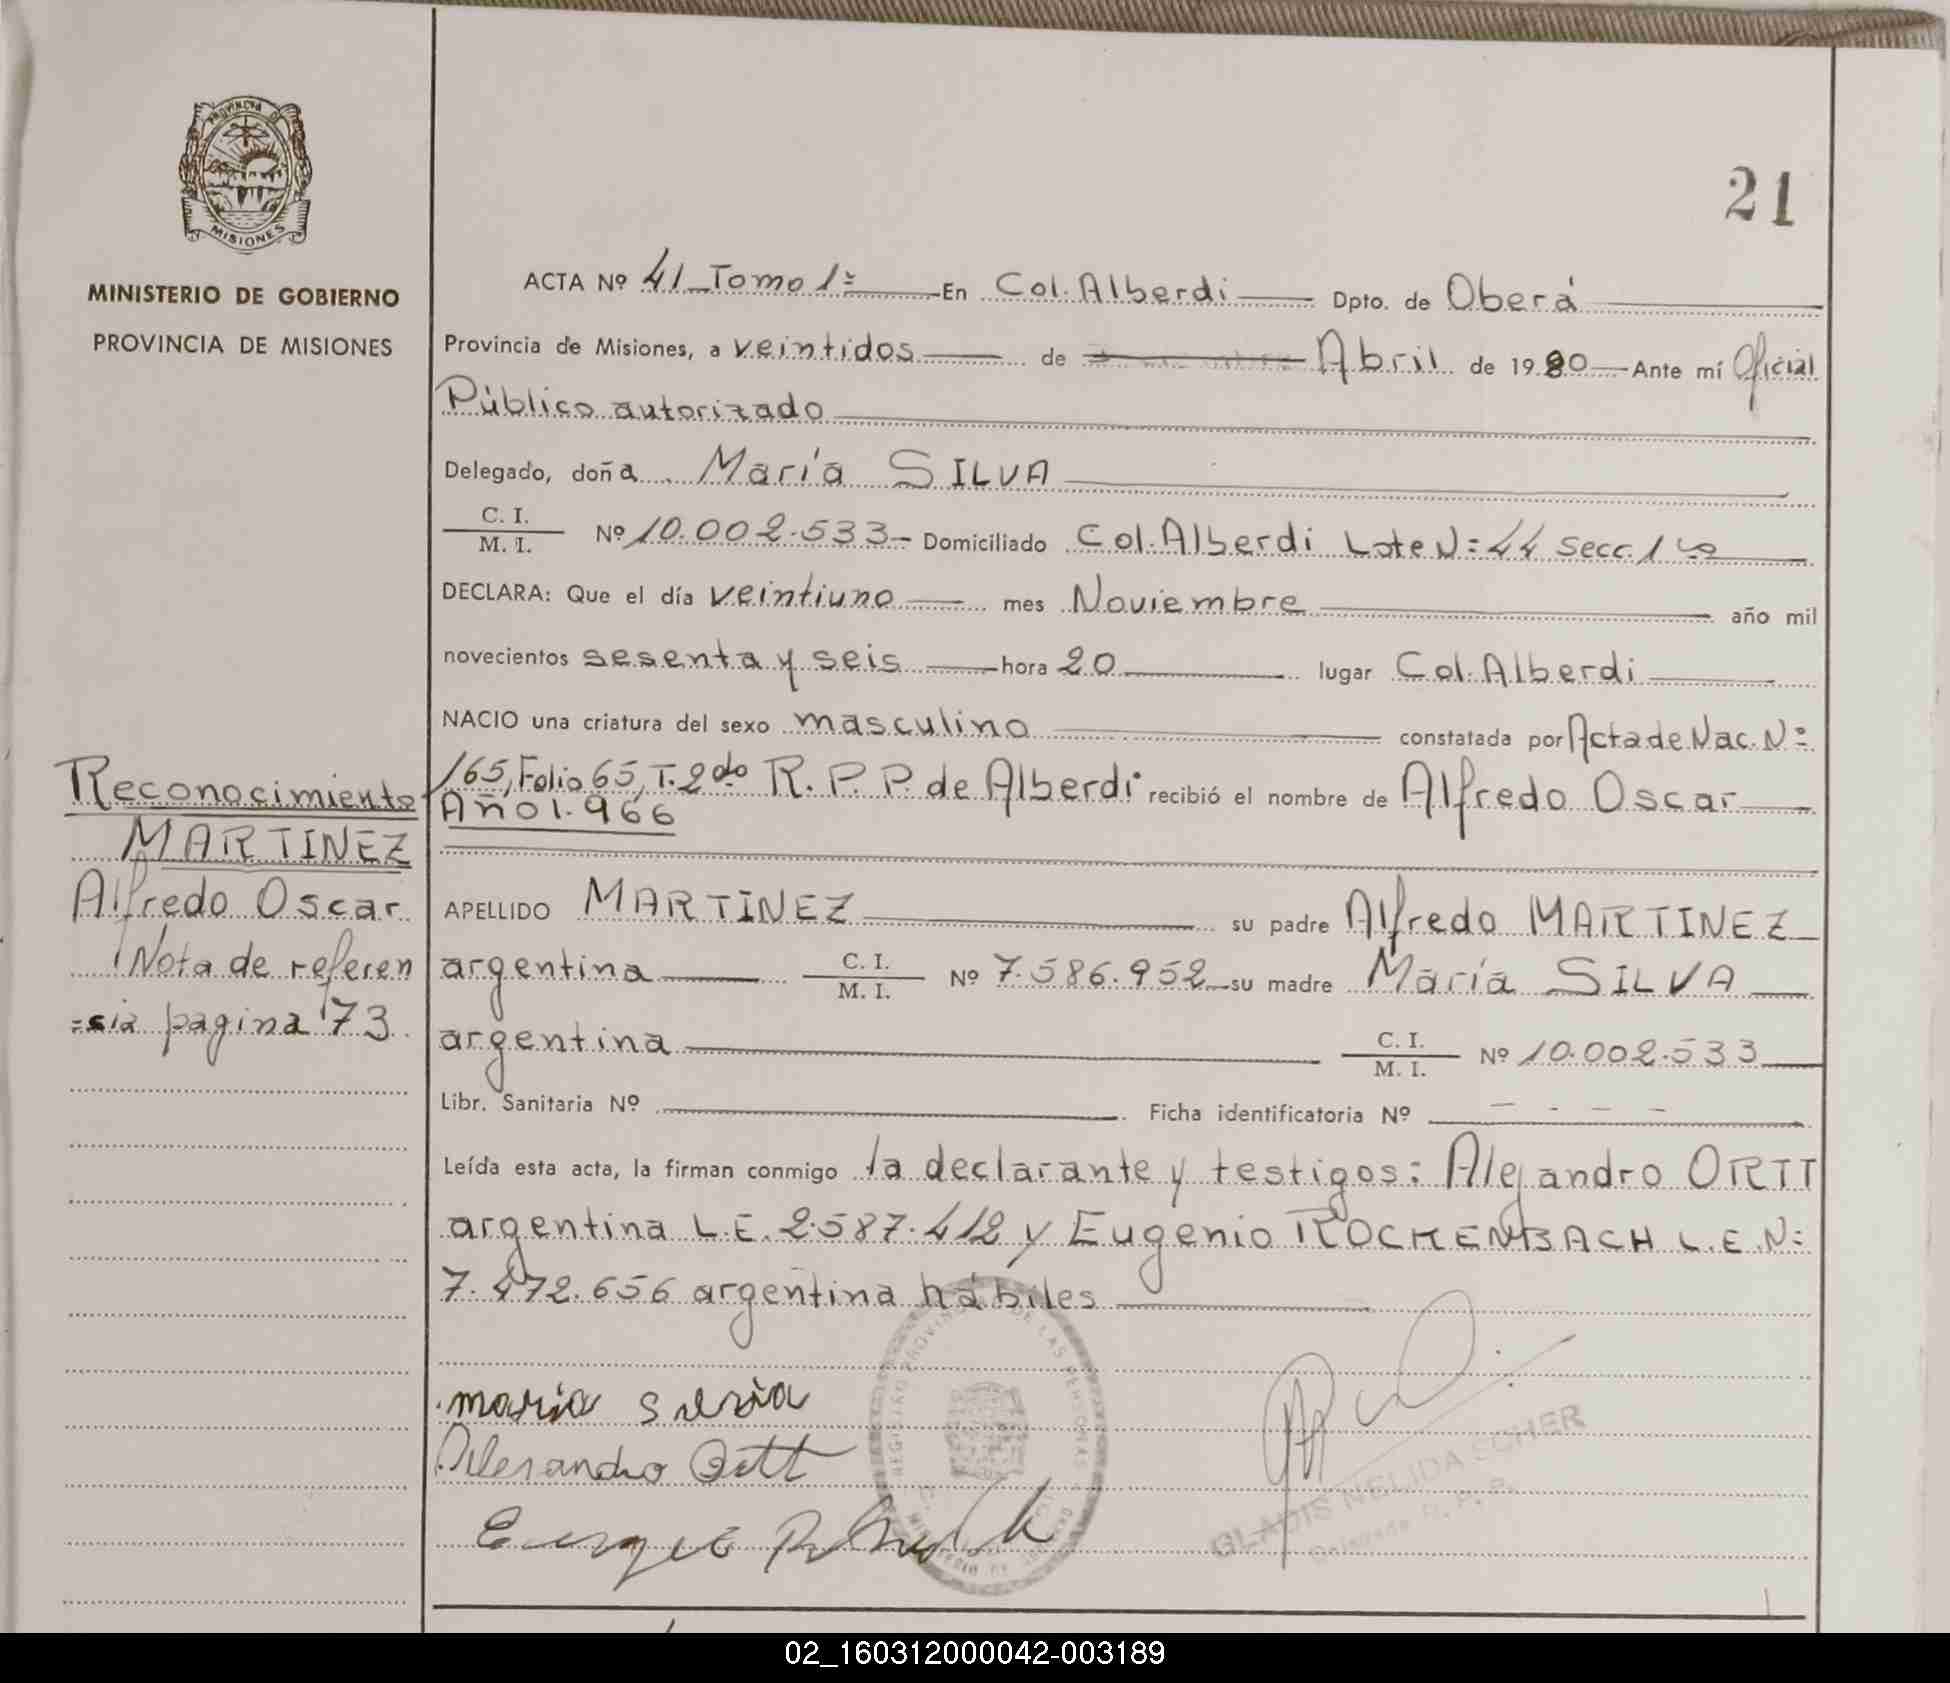 PROVINCIA DE
MISIONES
MINISTERIO DE GOBIERNO
PROVINCIA DE MISIONES
21
ACTA Nº 41 Tomo 1º En Col. Alberdi Dpto. de Oberá
Provincia de Misiones, a veintidos de Abril de 1980 Ante mí Oficial
Público autorizado
Delegado, doña María SILVA
C. I.
M. I. Nº 10.002.533- Domiciliado Col. Alberdi Lote N= 44 Secc. 1
DECLARA: Que el día veintiuno mes Noviembre año mil
novecientos sesenta y seis hora 20 lugar Col. Alberdi
NACIO una criatura del sexo masculino constatada por Acta de Nac. Nº
165, Folio 65, T. 2do R. P. P. de Alberdi recibió el nombre de Alfredo Oscar
Año 1.966
APELLIDO MARTINEZ su padre Alfredo MARTINEZ
argentina C. I. M. I. Nº 7.586.952 su madre María SILVA
argentina C. I. M. I. Nº 10.002.533
Libr. Sanitaria Nº Ficha identificatoria Nº - - - -
Leída esta acta, la firman conmigo la declarante y testigos: Alejandro ORTT
argentina L.E. 2.587.412 y Eugenio ROCKENBACH L.E.N:
7.472.656 argentina hábiles
Reconocimiento
MARTINEZ
Alfredo Oscar
Nota de referen
=sia pagina 73.
maria silvia
Alesandro Ortt
REGISTRO PROVINCIAL DE LAS PERSONAS
GLADIS NELIDA SCHER
Delegada R. P. P.
02_160312000042-003189